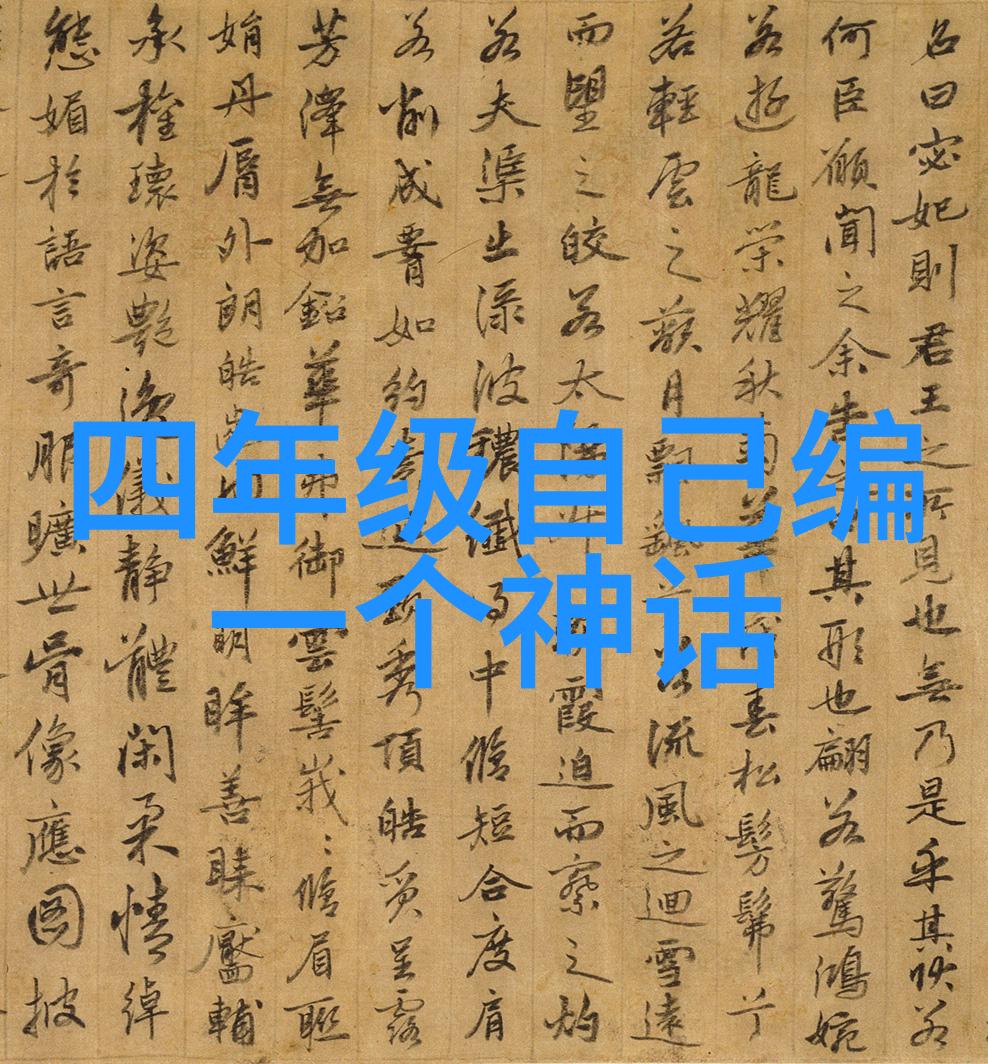 四年级自己编
一个神话
名曰宓妃則君王之所見也無乃是乎其狀若
何臣願聞之余告之曰其形也翩若驚鴻婉
若遊龍榮耀秋菊華茂春松髣髴兮
若輕雲之蔽月飄颻兮若流風之迴雪遠
而望之皎若太陽升朝霞迫而察之灼
若夫渠出淥波穠纖得中脩短合度肩
若削成腰如約素延頸秀項皓質呈露
芳澤無加鉛華弗御雲髻峩〻脩眉聯
娟丹脣外朗皓齒內鮮明眸善睞靨輔
承權瓌姿艷逸儀靜體閑柔情綽
態媚於語言奇服曠世骨像應圖披